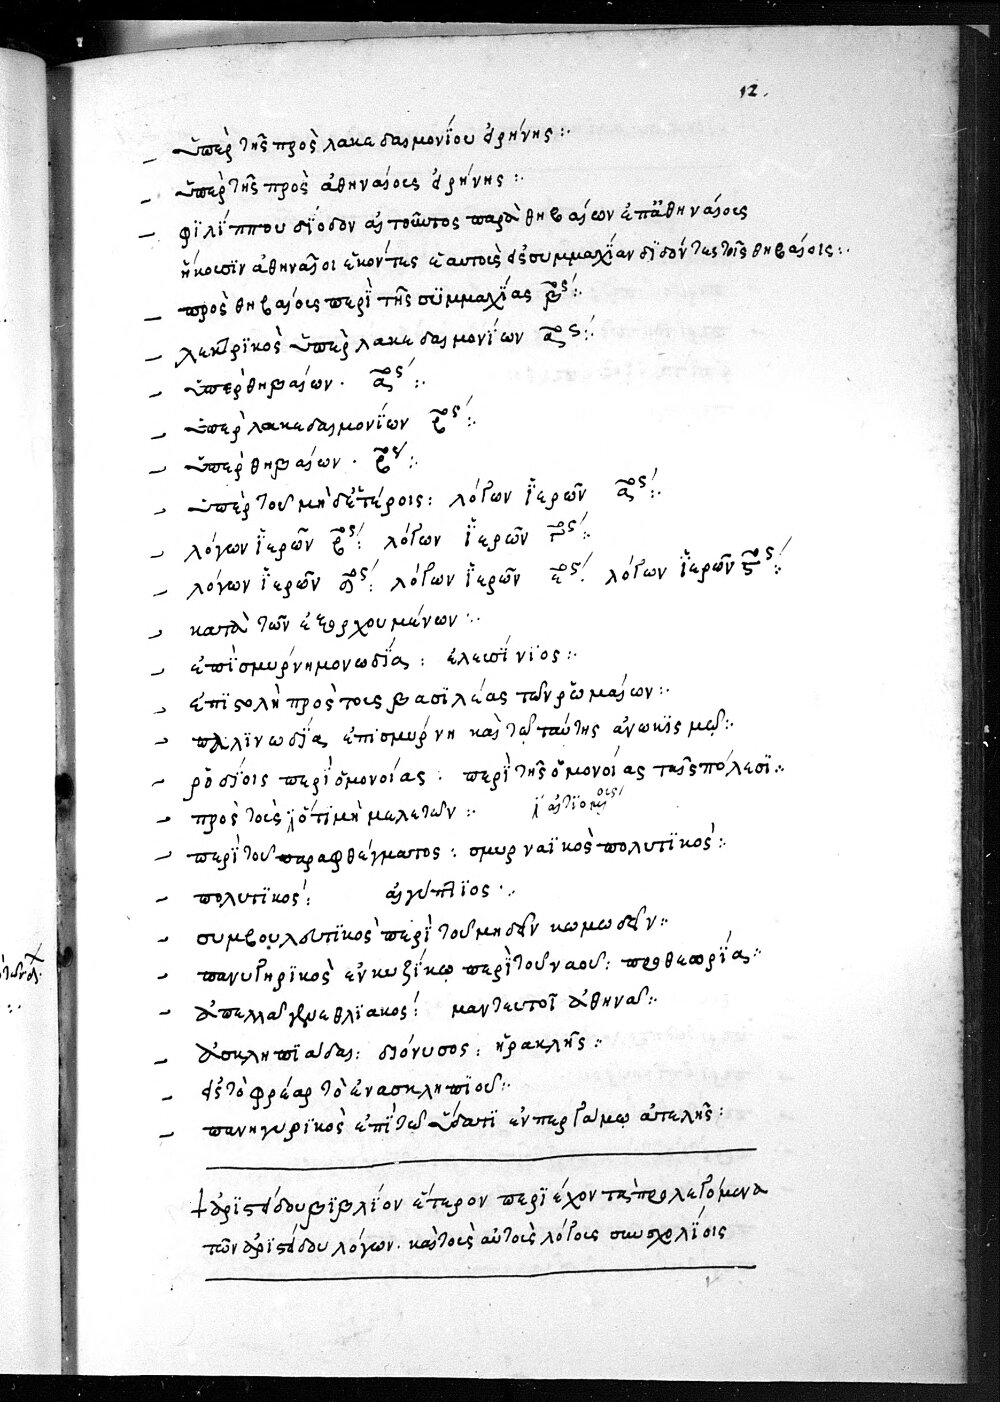 12.
ὑπὲρ τῆς πρὸς λακεδαιμονίου εἰρήνης :·
ὑπὲρ τῆς πρὸς ἀθηναίους εἰρήνης :·
φιλίππου δίοδον αἰτοῦντος παρὰ θηβαίων ἐπ' ἀθηναίους
ἥκουσϊν ἀθηναῖοι ἑκόντες ἑαυτοὺς εἰς συμμαχίαν διδόντες τοῖς θηβαίοις :·
πρὸς θηβαίους περὶ τῆς συμμαχίας βος :·
λεκτρικὸς ὑπὲρ λακεδαιμονίων αος :·
ὑπὲρ θηβαίων · αος :·
ὑπὲρ λακεδαιμονίων βος :·
ὑπὲρ θηβαίων · βος :·
ὑπὲρ τοῦ μηδετέροις : λόγων ἱερῶν αος :·
λόγων ἱερῶν βος : λόγων ἱερῶν γος :·
λόγων ἱερῶν δος : λόγων ἱερῶν εος : λόγων ἱερῶν ςος :·
κατὰ τῶν ἐξορχουμένων ·:
ἐπὶ σμύρνη μονωδία : ἐλευσίνιος :·
ἐπιστολὴ πρὸς τοὺς βασιλέας τῶν ῥωμαίων :·
παλινωδία ἐπὶ σμύρνη καὶ τῷ ταύτης ἀνοικισμῷ :·
ῥοδίοις περὶ ὁμονοίας · περὶ τῆς ὁμονοίας ταῖς πόλεσι :·
πρὸς τοὺς ὅτι μὴ μελετῶν :·
περὶ τοῦ παραφθέγματος : σμυρναϊκὸς πολυτικὸς :·
πολυτικὸς : αἰγύπτιος ·:
συμβουλευτικὸς περὶ τοῦ μὴ δεῖν κωμωδεῖν :·
πανυγηρικὸς ἐν κυζίκω περὶ τοῦ ναοῦ : προθεωρία :·
ἀπελλᾶ γενεθλιακὸς : μαντευτοὶ ἀθηνᾶ :·
ἀσκληπιάδαι : διόνυσος : ἡρακλῆς :·
εἰς τὸ φρέαρ τὸ ἐν ἀσκληπιοῦ :·
πανηγυρικὸς ἐπὶ τῷ ὕδατι ἐν περγάμω ἀτελής :
ἀριστείδου βιβλίον ἕτερον περιέχον τὰ προλεγόμενα
τῶν ἀριστείδου λόγων · καὶ τοὺς αὐτοὺς λόγους συν σχολίοις